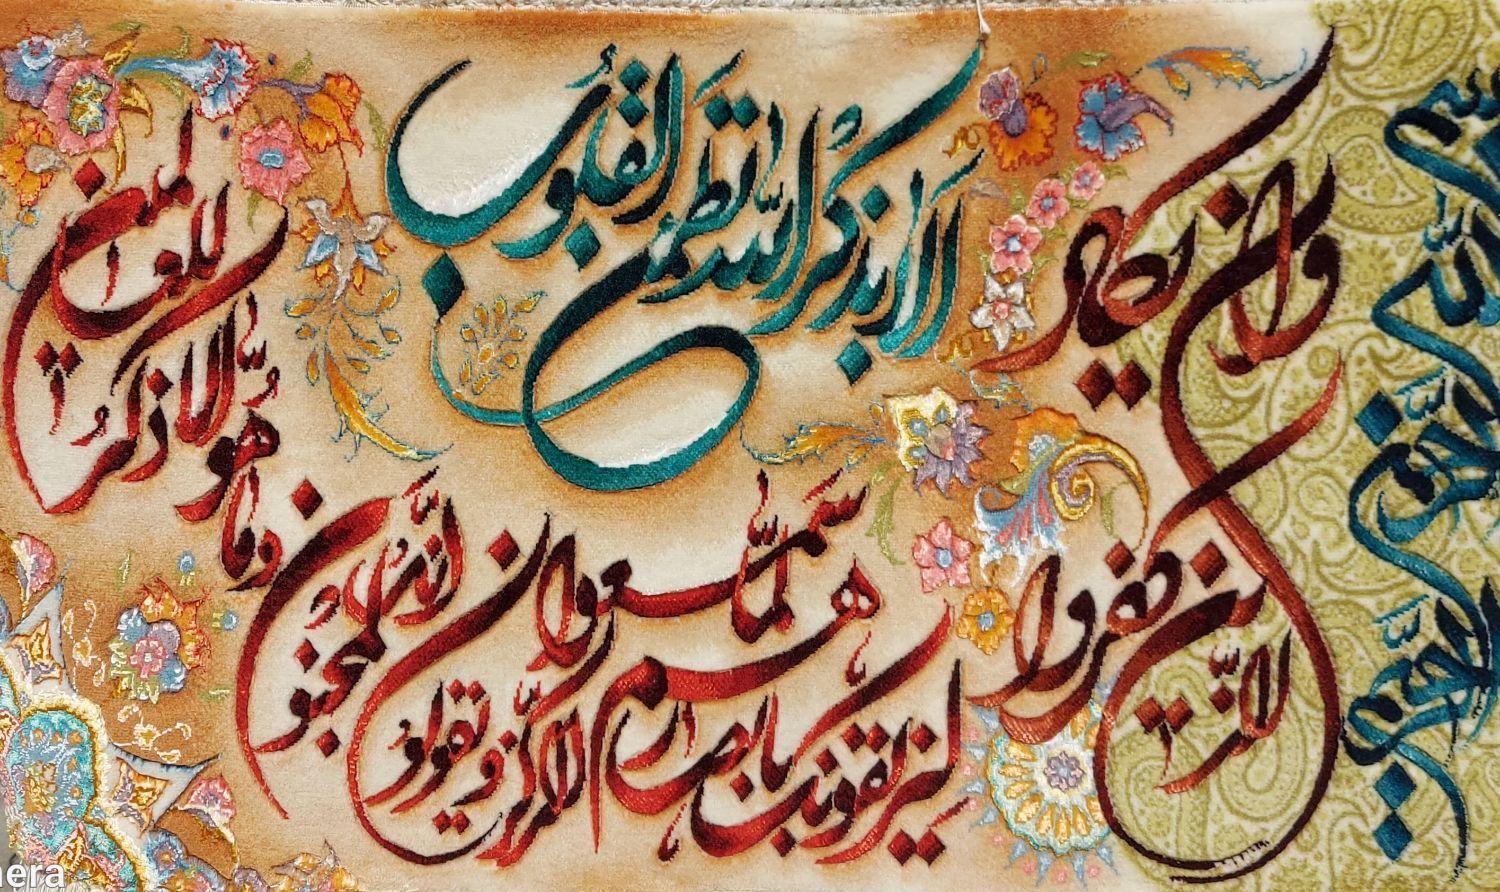 بسم الله الرحمن الرحیم
وان یکاد
الذین کفروا
لیزلقونک بابصارهم
لما سمعوا الذکر ویقولون
انه لمجنون
وما هو الا ذکر
للعالمین
الا بذکر الله تطمئن القلوب
nera